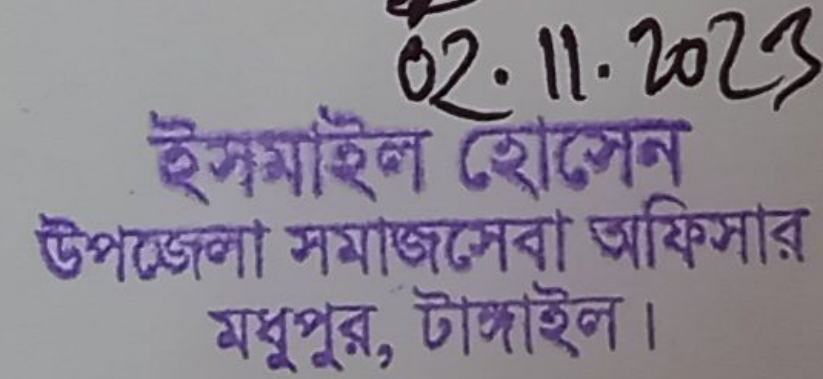 02.11.2023
ইসমাইল হোসেন
উপজেলা সমাজসেবা অফিসার
মধুপুর, টাঙ্গাইল।